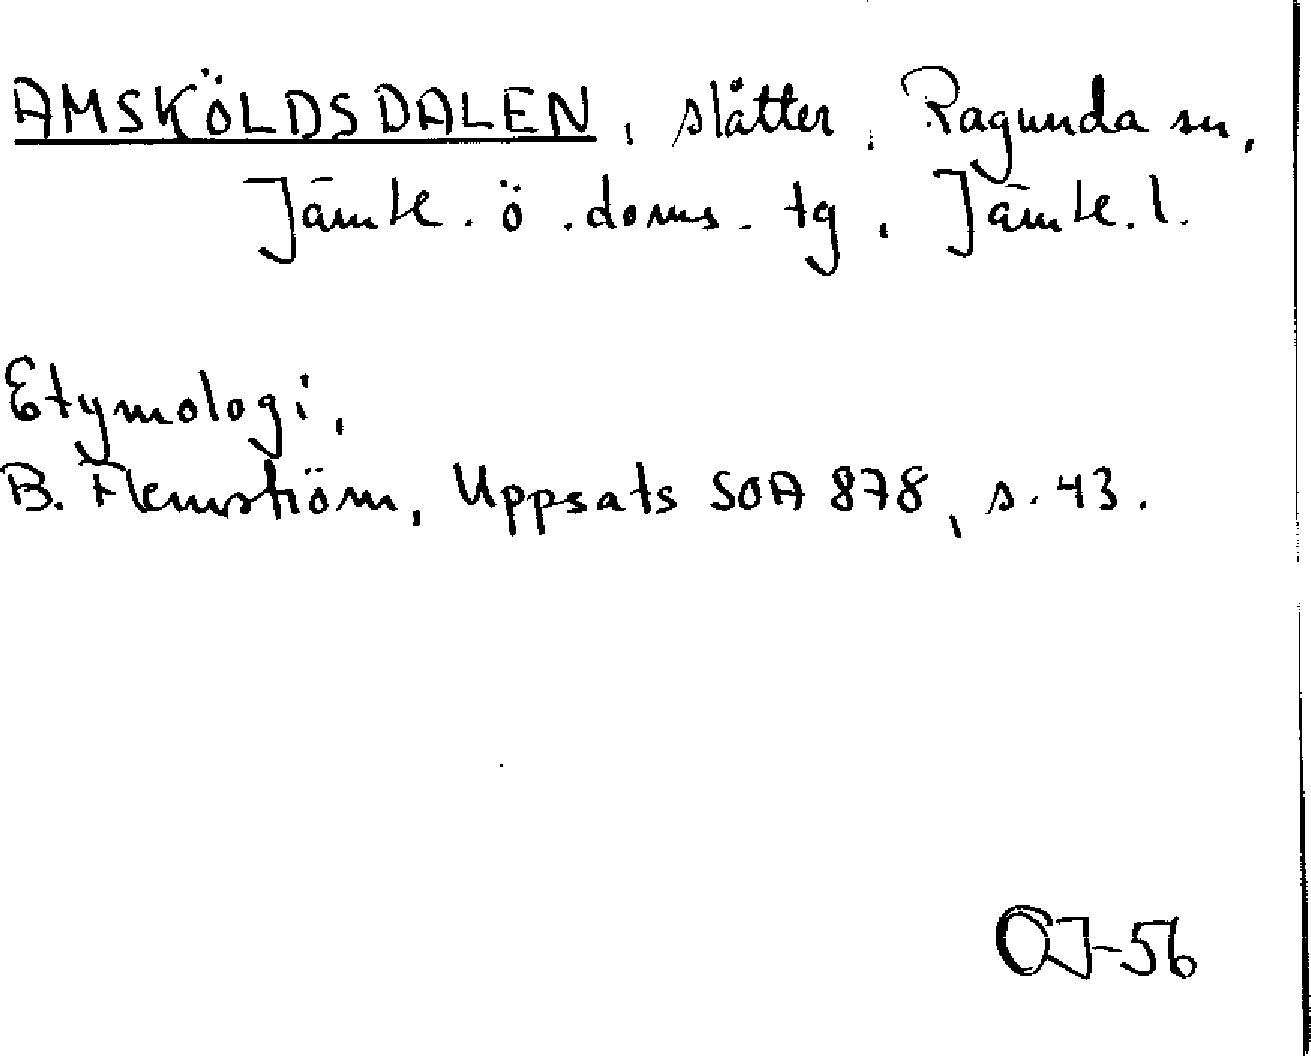 AMSKÖLDSDALEN, slåtter, Ragunda sn,
Jämtl. ö. doms. tg, Jämtl. l.
Etymologi,
B. Flemström, Uppsats SOA 878, s. 43.
OJ-56